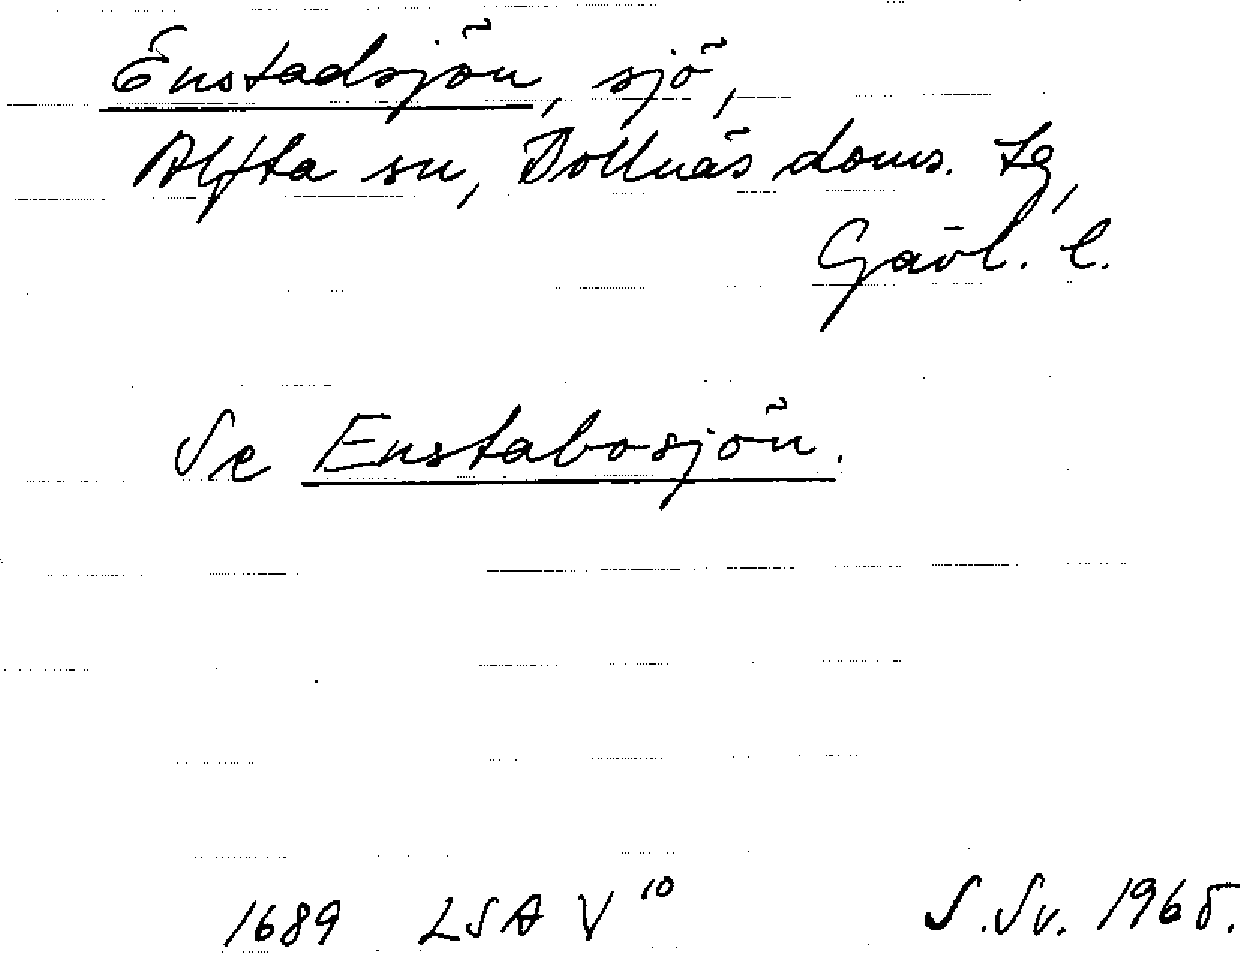 Enstadsjön, sjö,
Alfta sn, Bollnäs doms. tg,
Gävl. l.
Se Enstabosjön.
1689 LSA V 10 S.Sv. 1965.